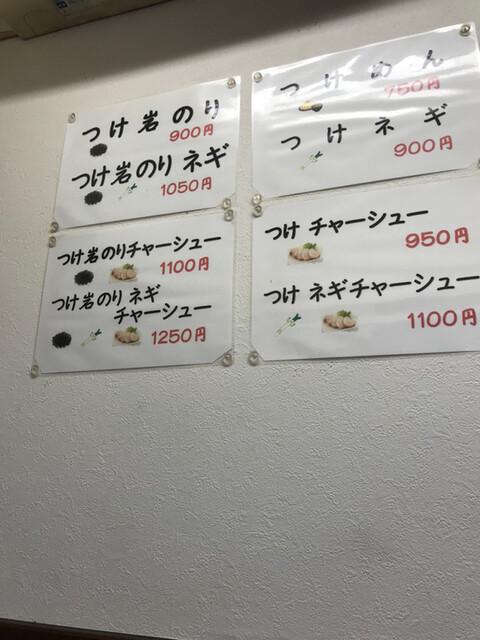 つけ岩のり
900円
つけ岩のり ネギ
1050円
つけ岩のりチャーシュー
1100円
つけ岩のり ネギ
チャーシュー
1250円
つけめん
750円
つけネギ
900円
つけ チャーシュー
950円
つけ ネギチャーシュー
1100円